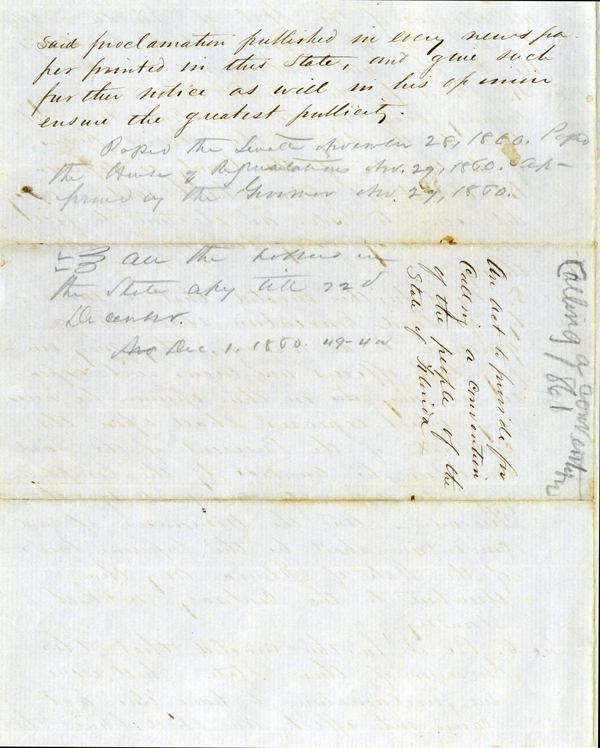 said proclamation published in every newspa-
per printed in this State, and give such
further notice as will in his opinion
ensure the greatest publicity.
Passed the Senate November 28, 1860. Passed
the House of Representatives Nov. 29, 1860. Ap-
proved by the Governor Nov. 29, 1860.
all the in
the State till 22d
December.
Dec. 1, 1860. 49-4w
An Act to provide for
Calling a convention
of the people of the
State of Florida
Calling a convention
1861